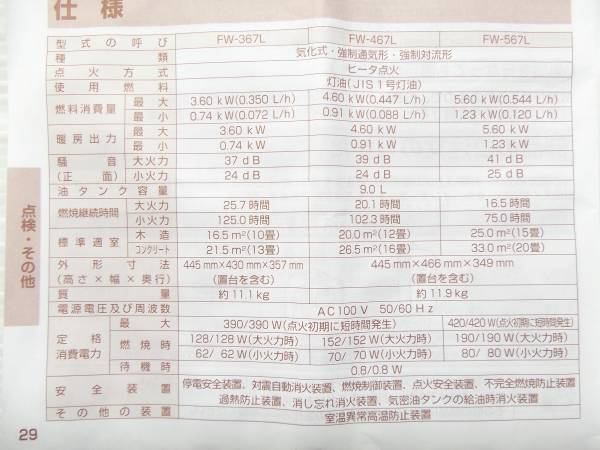 仕様
型式の呼び FW-367L FW-467L FW-567L
種類 気化式・強制通気形・強制対流形
点火方式 ヒータ点火
使用燃料 灯油(JIS1号灯油)
燃料消費量 最大 3.60 kW(0.350 L/h) 4.60 kW(0.447 L/h) 5.60 kW(0.544 L/h)
最小 0.74 kW(0.072 L/h) 0.91 kW(0.088 L/h) 1.23 kW(0.120 L/h)
暖房出力 最大 3.60 kW 4.60 kW 5.60 kW
最小 0.74 kW 0.91 kW 1.23 kW
騒音 大火力 37 dB 39 dB 41 dB
(正面) 小火力 24 dB 24 dB 25 dB
油タンク容量 9.0 L
燃焼継続時間 大火力 25.7 時間 20.1 時間 16.5 時間
小火力 125.0 時間 102.3 時間 75.0 時間
標準適室 木造 16.5 m²(10畳) 20.0 m²(12畳) 25.0 m²(15畳)
コンクリート 21.5 m²(13畳) 26.5 m²(16畳) 33.0 m²(20畳)
外形寸法 445 mm×430 mm×357 mm 445 mm×466 mm×349 mm
(高さ×幅×奥行) (置台を含む) (置台を含む)
質量 約 11.1 kg 約 11.9 kg
電源電圧及び周波数 AC100 V 50/60 Hz
定格消費電力 最大 390/390 W(点火初期に短時間発生) 420/420 W(点火初期に短時間発生)
燃焼時 128/128 W(大火力時) 152/152 W(大火力時) 190/190 W(大火力時)
62/ 62 W(小火力時) 70/ 70 W(小火力時) 80/ 80 W(小火力時)
待機時 0.8/0.8 W
安全装置 停電安全装置、対震自動消火装置、燃焼制御装置、点火安全装置、不完全燃焼防止装置
過熱防止装置、消し忘れ消火装置、気密油タンクの給油時消火装置
その他の装置 室温異常高温防止装置
点検・その他
29